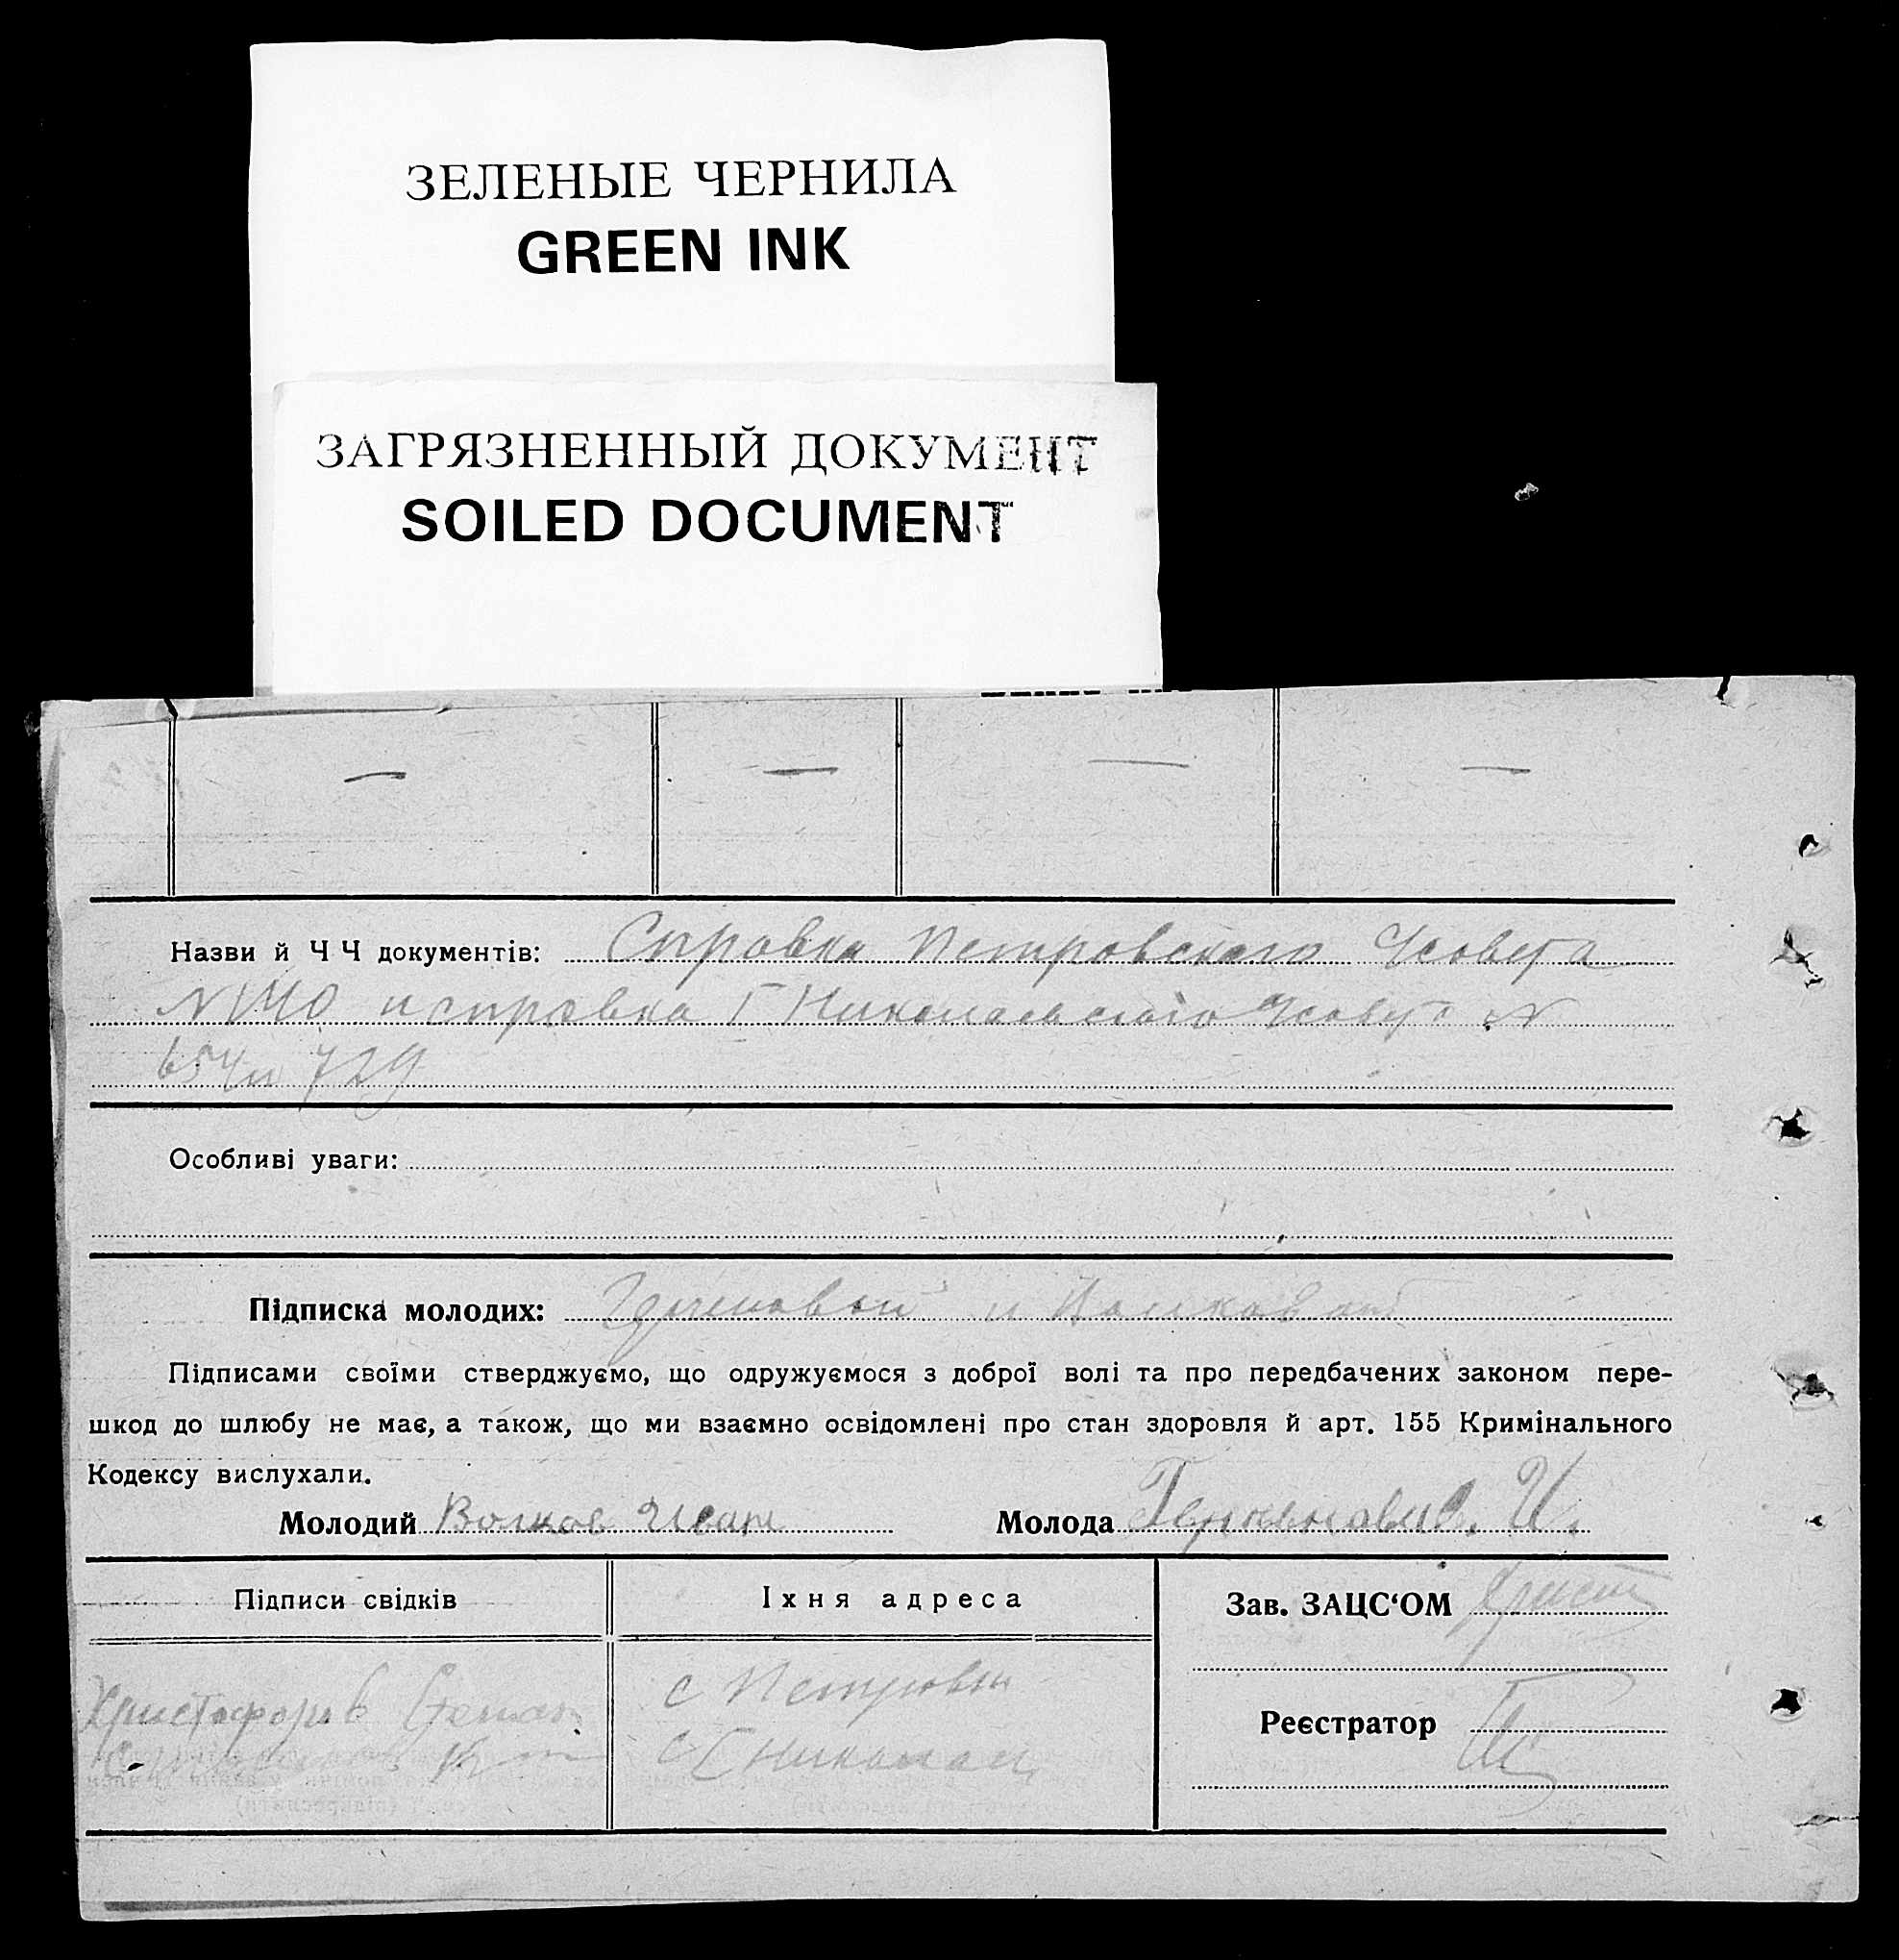 ЗЕЛЕНЫЕ ЧЕРНИЛА
GREEN INK
ЗАГРЯЗНЕННЫЙ ДОКУМЕНТ
SOILED DOCUMENT
Назви й Ч Ч документів: Справка Петровского
и справка Г Николаевского N
729
Особливі уваги:
Підписка молодих: и
Підписами своїми стверджуємо, що одружуємося з доброї волі та про передбачених законом пере-
шкод до шлюбу не має, а також, що ми взаємно освідомлені про стан здоровля й арт. 155 Кримінального
Кодексу вислухали.
Молодий Волков Иван Молода И.
Підписи свідків Їхня адреса Зав. ЗАЦС‘ОМ
Христофоров с Петровка
Реєстратор
с